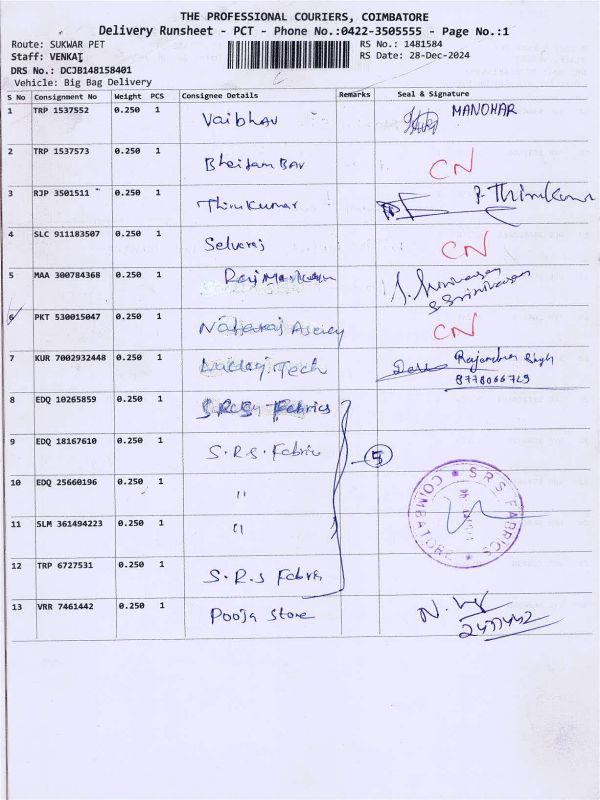 THE PROFESSIONAL COURIERS, COIMBATORE
Delivery Runsheet - PCT - Phone No.:0422-3505555 - Page No.:1
Route: SUKWAR PET RS No.: 1481584
Staff: VENKAT RS Date: 28-Dec-2024
DRS No.: DCJB148158401
Vehicle: Big Bag Delivery
S No Consignment No Weight PCS Consignee Details Remarks Seal & Signature
1 TRP 1537552 0.250 1 Vaibhav MANOHAR
2 TRP 1537573 0.250 1 CN
3 RJP 3501511 0.250 1 Thirukumar P. Thirukumar
4 SLC 911183507 0.250 1 Selvaraj CN
5 MAA 300784368 0.250 1 S. Srinivasan
S. Srinivasan
6 PKT 530015047 0.250 1 CN
7 KUR 7002932448 0.250 1 Tech Singh
8778066729
8 EDQ 10265859 0.250 1 S.R.S Fabrics
9 EDQ 18167610 0.250 1 S.R.S. Fabric
5
10 EDQ 25660196 0.250 1 "
11 SLM 361494223 0.250 1 "
SRS FABRICS
COIMBATORE
12 TRP 6727531 0.250 1 S.R.S Fabric
13 VRR 7461442 0.250 1 Pooja Store